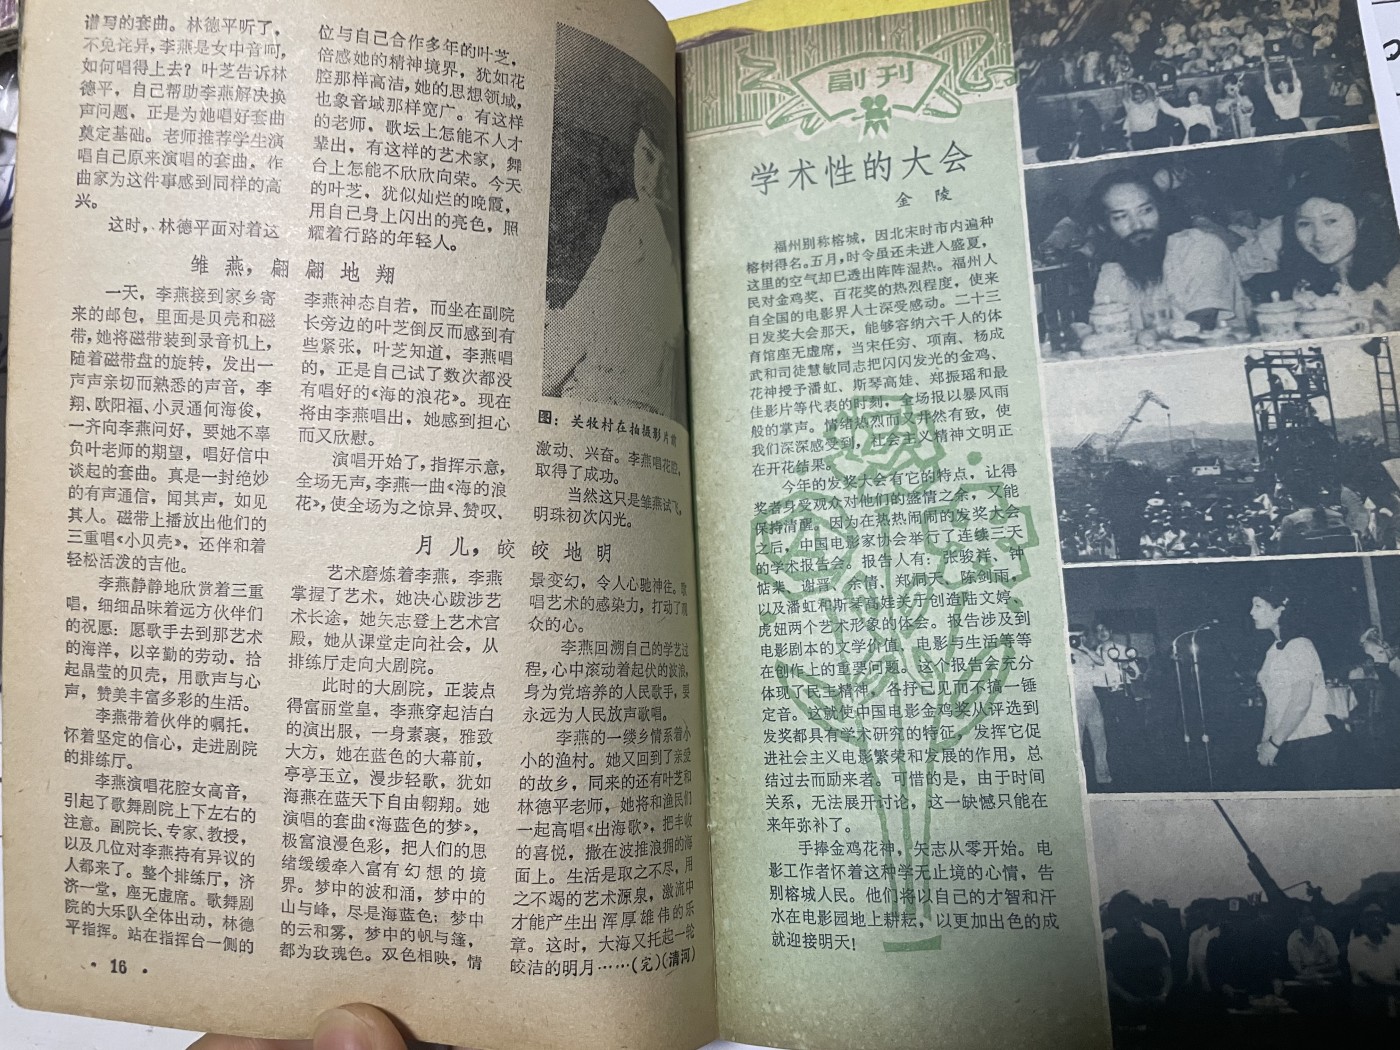 谱写的套曲。林德平听了，
不免诧异，李燕是女中音啊，
如何唱得上去？叶芝告诉林
德平，自己帮助李燕解决换
声问题，正是为她唱好套曲
奠定基础。老师推荐学生演
唱自己原来演唱的套曲，作
曲家为这件事感到同样的高
兴。
这时，林德平面对着这
位与自己合作多年的叶芝，
倍感她的精神境界，犹如花
腔那样高洁，她的思想领域，
也象音域那样宽广。有这样
的老师，歌坛上怎能不人才
辈出，有这样的艺术家，舞
台上怎能不欣欣向荣。今天
的叶芝，犹似灿烂的晚霞，
用自己身上闪出的亮色，照
耀着行路的年轻人。
雏燕，翩翩地翔
一天，李燕接到家乡寄
来的邮包，里面是贝壳和磁
带，她将磁带装到录音机上，
随着磁带盘的旋转，发出一
声声亲切而熟悉的声音，李
翔、欧阳福、小灵通何海俊，
一齐向李燕问好，要她不辜
负叶老师的期望，唱好信中
谈起的套曲。真是一封绝妙
的有声通信，闻其声，如见
其人。磁带上播放出他们的
三重唱《小贝壳》，还伴和着
轻松活泼的吉他。
李燕静静地欣赏着三重
唱，细细品味着远方伙伴们
的祝愿：愿歌手去到那艺术
的海洋，以辛勤的劳动，拾
起晶莹的贝壳，用歌声与心
声，赞美丰富多彩的生活。
李燕带着伙伴的嘱托，
怀着坚定的信心，走进剧院
的排练厅。
李燕演唱花腔女高音，
引起了歌舞剧院上下左右的
注意。副院长、专家、教授，
以及几位对李燕持有异议的
人都来了。整个排练厅，济
济一堂，座无虚席。歌舞剧
院的大乐队全体出动，林德
平指挥。站在指挥台一侧的
李燕神态自若，而坐在副院
长旁边的叶芝倒反而感到有
些紧张，叶芝知道，李燕唱
的，正是自己试了数次都没
有唱好的《海的浪花》。现在
将由李燕唱出，她感到担心
而又欣慰。
演唱开始了，指挥示意，
全场无声，李燕一曲《海的浪
花》，使全场为之惊异、赞叹、
图：关牧村在拍摄影片前
激动、兴奋。李燕唱花腔，
取得了成功。
当然这只是雏燕试飞，
明珠初次闪光。
月儿，皎皎地明
艺术磨炼着李燕，李燕
掌握了艺术，她决心跋涉艺
术长途，她矢志登上艺术宫
殿，她从课堂走向社会，从
排练厅走向大剧院。
此时的大剧院，正装点
得富丽堂皇，李燕穿起洁白
的演出服，一身素裹，雅致
大方，她在蓝色的大幕前，
亭亭玉立，漫步轻歌，犹如
海燕在蓝天下自由翱翔。她
演唱的套曲《海蓝色的梦》，
极富浪漫色彩，把人们的思
绪缓缓牵入富有幻想的境
界。梦中的波和涌，梦中的
山与峰，尽是海蓝色；梦中
的云和雾，梦中的帆与篷，
都为玫瑰色。双色相映，情
景变幻，令人心驰神往。歌
唱艺术的感染力，打动了观
众的心。
李燕回溯自己的学艺过
程，心中滚动着起伏的波浪，
身为党培养的人民歌手，要
永远为人民放声歌唱。
李燕的一缕乡情系着小
小的渔村。她又回到了亲爱
的故乡，同来的还有叶芝和
林德平老师，她将和渔民们
一起高唱《出海歌》，把丰收
的喜悦，撒在波推浪拥的海
面上。生活是取之不尽，用
之不竭的艺术源泉，激流中
才能产生出浑厚雄伟的乐
章。这时，大海又托起一轮
皎洁的明月……（完）（清河）
· 16 ·
副刊
学术性的大会
金 陵
福州别称榕城，因北宋时市内遍种
榕树得名。五月，时令虽还未进入盛夏，
这里的空气却已透出阵阵湿热。福州人
民对金鸡奖、百花奖的热烈程度，使来
自全国的电影界人士深受感动。二十三
日发奖大会那天，能够容纳六千人的体
育馆座无虚席，当宋任穷、项南、杨成
武和司徒慧敏同志把闪闪发光的金鸡、
花神授予潘虹、斯琴高娃、郑振瑶和最
佳影片等代表的时刻，全场报以暴风雨
般的掌声。情绪热烈而又井然有致，使
我们深深感受到，社会主义精神文明正
在开花结果。
今年的发奖大会有它的特点，让得
奖者身受观众对他们的盛情之余，又能
保持清醒。因为在热热闹闹的发奖大会
之后，中国电影家协会举行了连续三天
的学术报告会。报告人有：张骏祥、钟
惦棐、谢晋、余倩、郑洞天、陈剑雨，
以及潘虹和斯琴高娃关于创造陆文婷、
虎妞两个艺术形象的体会。报告涉及到
电影剧本的文学价值、电影与生活等等
在创作上的重要问题。这个报告会充分
体现了民主精神，各抒己见而不搞一锤
定音。这就使中国电影金鸡奖从评选到
发奖都具有学术研究的特征，发挥它促
进社会主义电影繁荣和发展的作用，总
结过去而励来者。可惜的是，由于时间
关系，无法展开讨论，这一缺憾只能在
来年弥补了。
手捧金鸡花神，矢志从零开始。电
影工作者怀着这种学无止境的心情，告
别榕城人民。他们将以自己的才智和汗
水在电影园地上耕耘，以更加出色的成
就迎接明天！